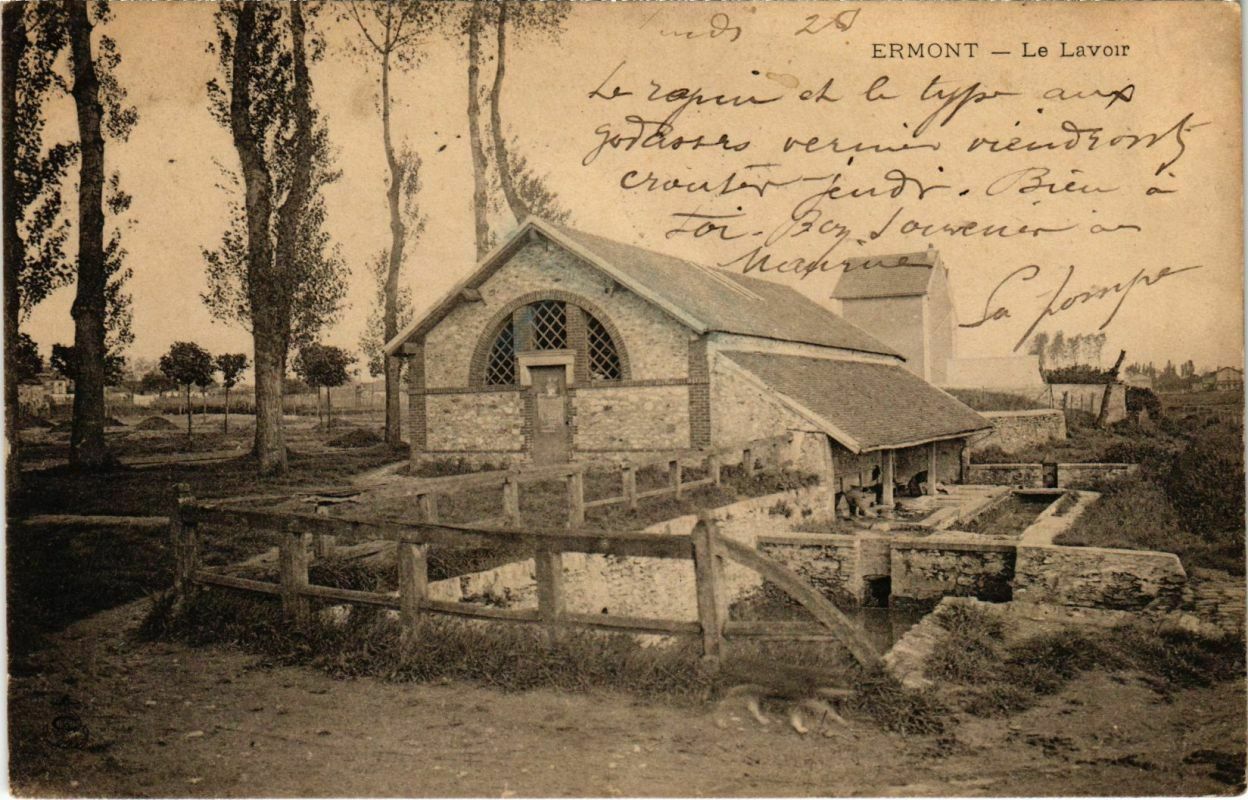 Lundi 28
ERMONT — Le Lavoir
Le rapin et le type aux
godasses vernier viendront
croûter jeudi. Bien à
toi. Boy Souvenir à
Maurice
La pompe